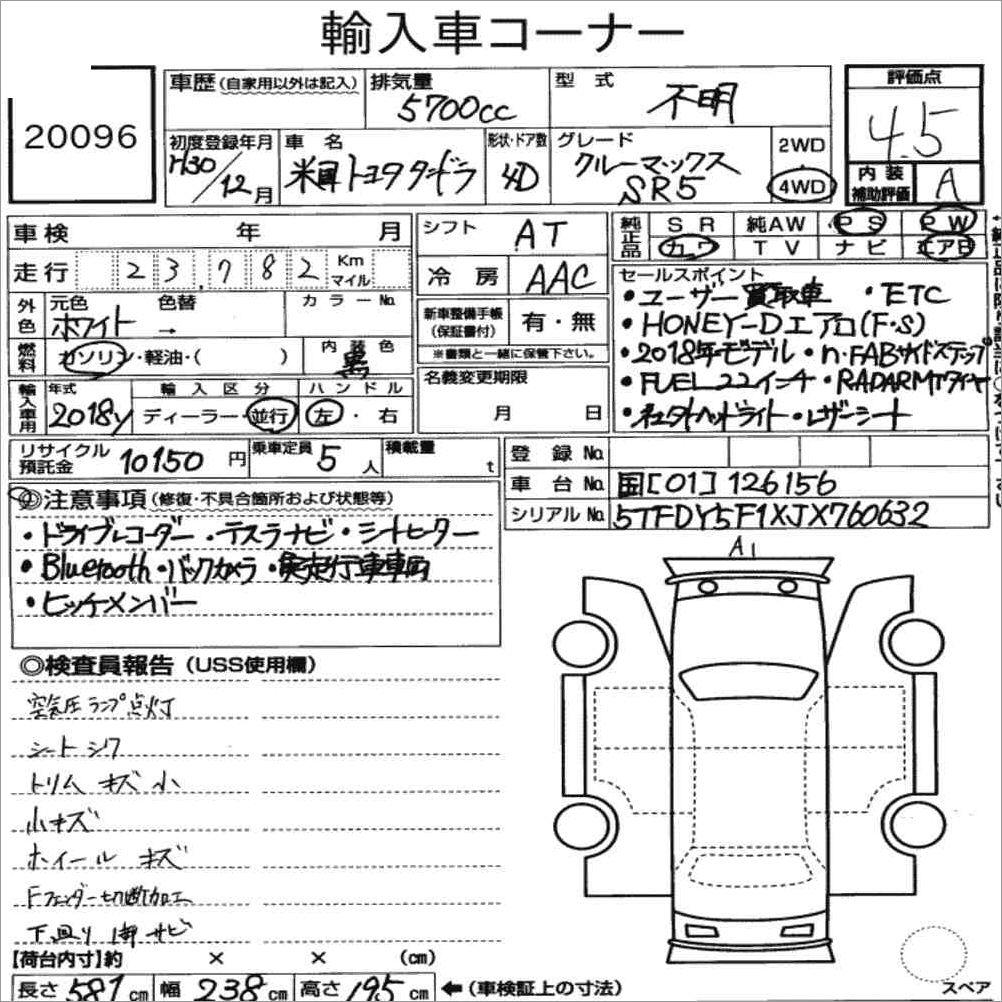 輸入車コーナー
20096
車歴 (自家用以外は記入)
排気量
5700cc
型式
不明
評価点
4.5
初度登録年月
H30/12月
車名
米国トヨタタンドラ
形状・ドア数
4D
グレード
クルーマックス
SR5
2WD
4WD
内装
補助評価
A
車検 年 月
シフト
AT
純正品
SR 純AW PS PW
カワ TV ナビ エアB
走行 23,782 Km マイル
冷房
AAC
セールスポイント
・ユーザー買取車 ・ETC
・HONEY-Dエアロ(F・S)
・2018年モデル・n・FABサイドステップ
・FUEL22インチ・RADARMTタイヤ
・社外ヘッドライト・レザーシート
外色
元色 色替 カラーNo.
ホワイト →
新車整備手帳
(保証書付)
有・無
※書類と一緒に保管下さい。
燃料
ガソリン・軽油・( )
内装色
黒
名義変更期限
月 日
輸入車用
年式
2018y
輸入区分
ディーラー・並行
ハンドル
左・右
リサイクル
預託金
10150円
乗車定員
5人
積載量
t
登録No.
車台No.
国[01]126156
シリアルNo.
5TFDY5F1XJX760632
注意事項 (修復・不具合箇所および状態等)
・ドライブレコーダー・テスラナビ・シートヒーター
・Bluetooth・バックカメラ・実走行車車両
・ヒッチメンバー
A1
◎検査員報告 (USS使用欄)
空気圧ランプ点灯
シートシワ
トリムキズ小
小キズ
ホイールキズ
Fフェンダー切断加工
下廻り1部サビ
【荷台内寸】約 × × (cm)
長さ 581cm 幅 238cm 高さ 195cm ←(車検証上の寸法)
スペア